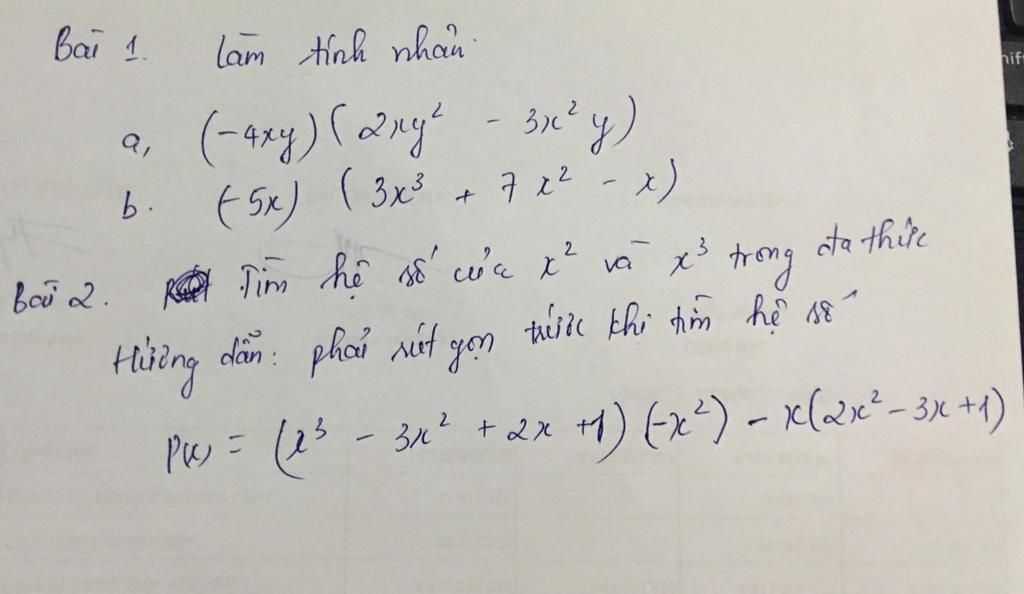 Bài 1. Làm tính nhân.
a, (-4xy)(2xy² - 3x²y)
b. (-5x) (3x³ + 7x² - x)
Bài 2. Tìm hệ số của x² và x³ trong đa thức
Hướng dẫn: phải rút gọn trước khi tìm hệ số
P(x) = (x³ - 3x² + 2x + 1) (-x²) - x(2x² - 3x + 1)